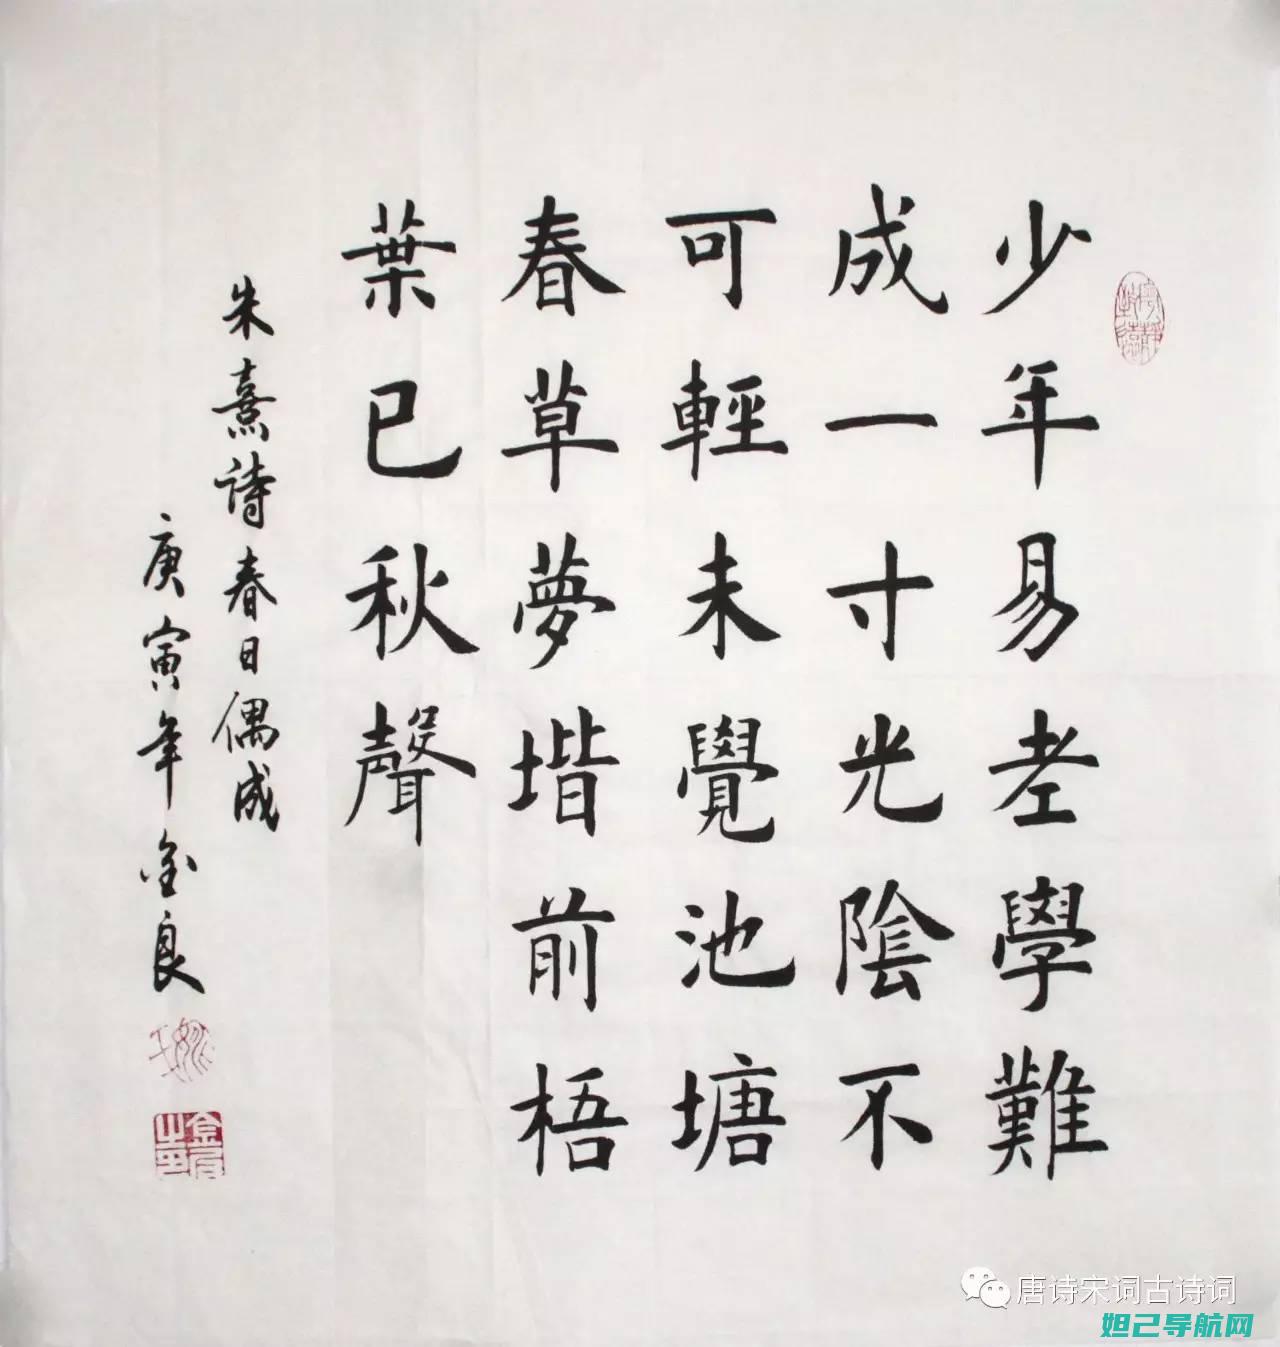 寧靜致遠
少年易老學難
成一寸光陰不
可輕未覺池塘
春草夢堦前梧
葉已秋聲
朱熹诗春日偶成
庚寅年金良
金良之印
唐诗宋词古诗词
妲己导航网